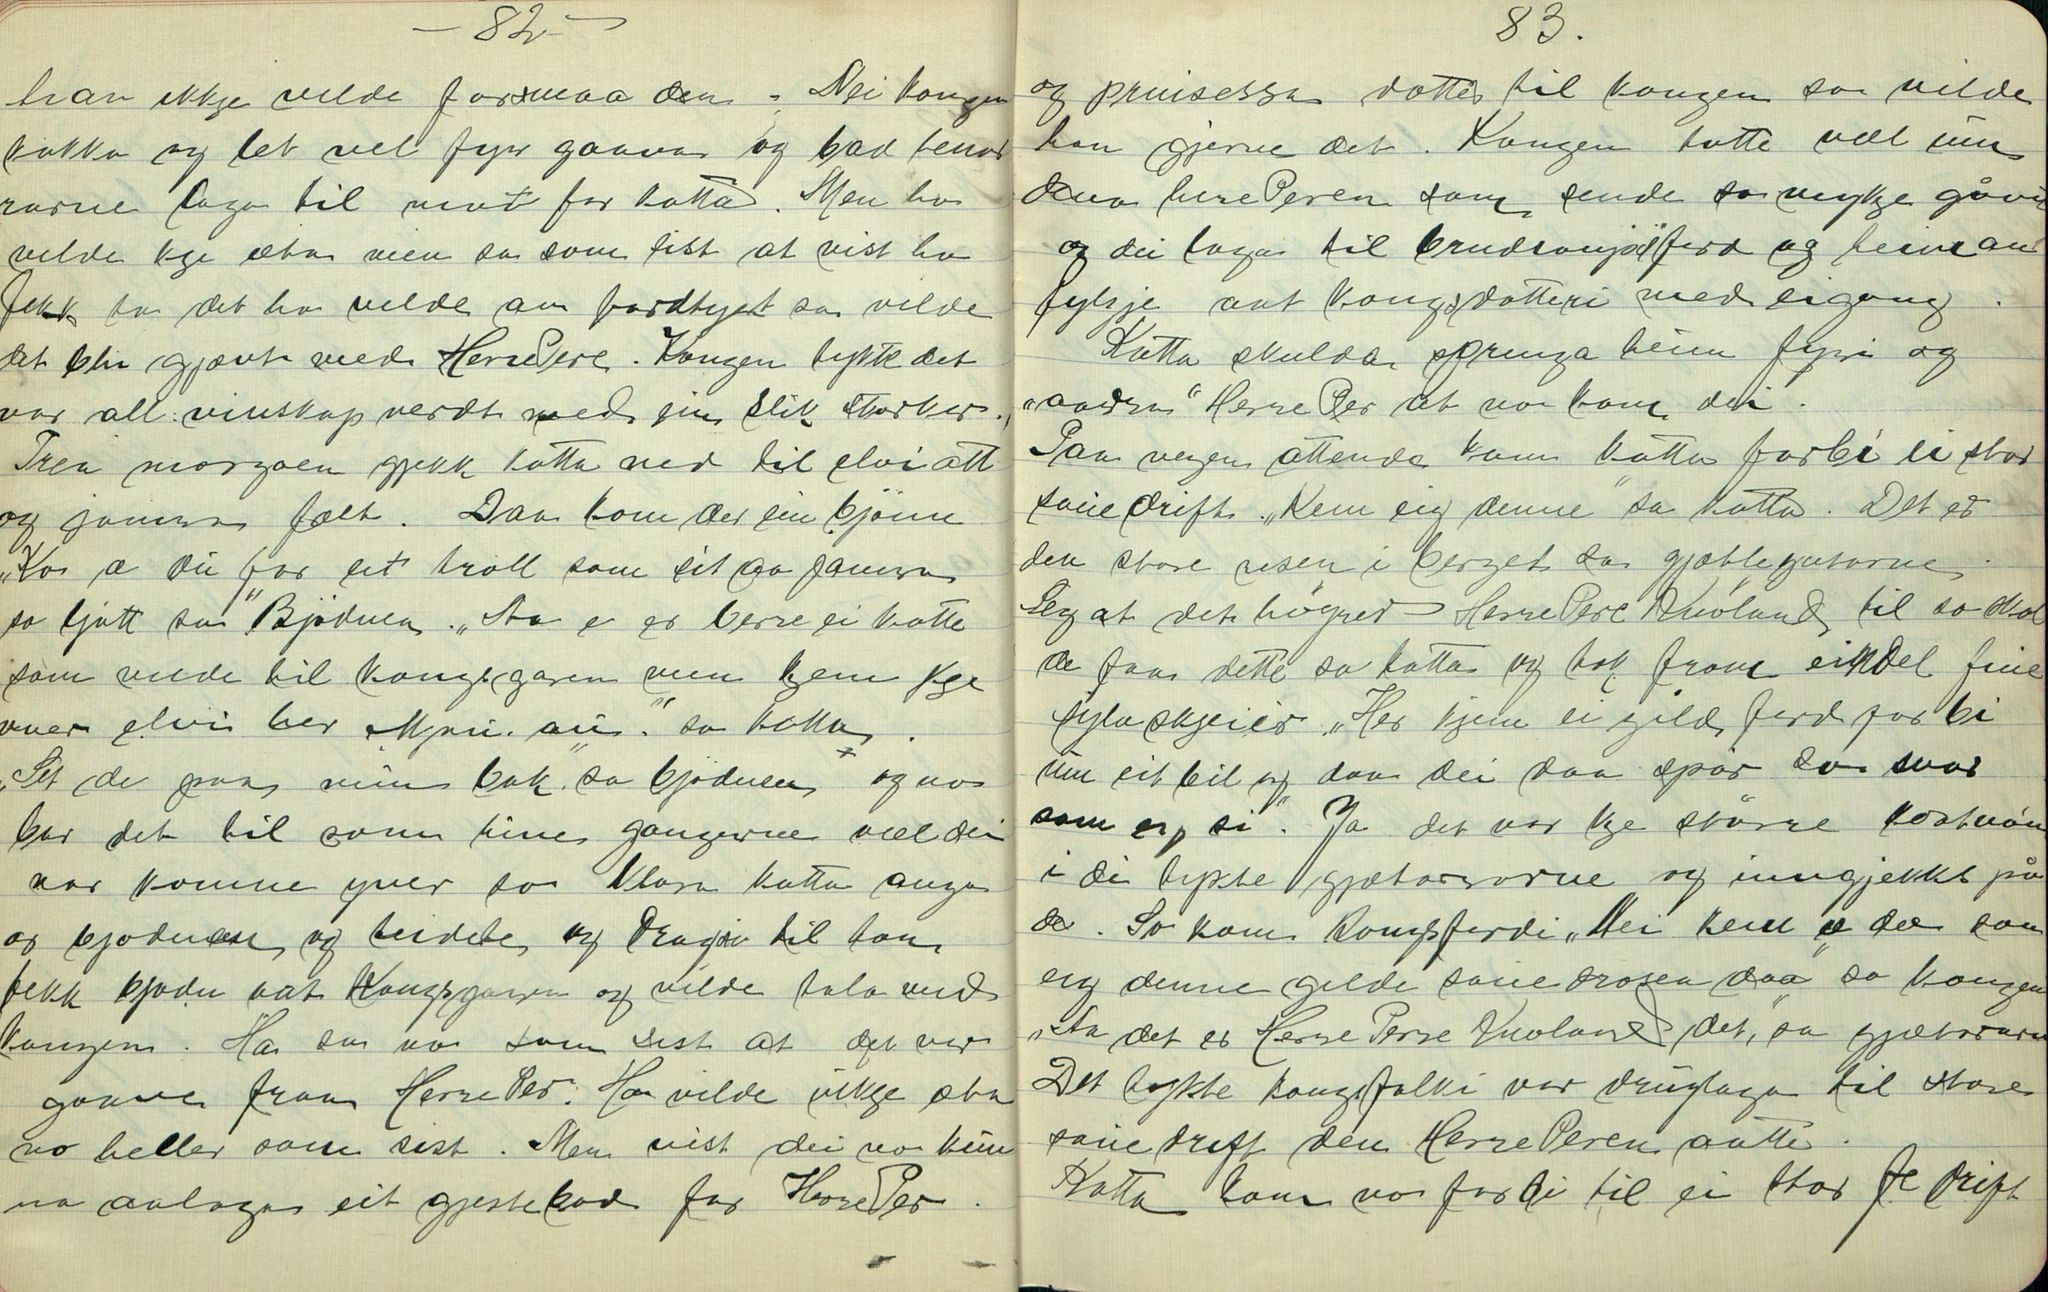 - 82 -
han ikkje vilde forsmaa den. Nei kongen
takka og let vel fyr gaava og bad tenar
rarne laga til mat for katta. Men ho
vilde kje eta mien sa som sist at vist ho
fekk ha det ho vilde au fordtyct so vilde
det bli gjævt med HerrePere. Kongen tykte det
var all vinskap verdt med ein slik storkar.
Trea morgoen gjekk katta ned til elvi att
og jamra fælt. Daa kom der ein bjönn
"Ko æ du for eit troll som sit aa jamra
so ljott" sa Bjödnen. "Aa e er berre ei katte
som vilde til kongsgaren men kjem kje
yver elvi her Mjaú. aú." sa katta.
"Set de paa min bak" sa bjödnen og no
bar det til som hine gongerne vel dei
var komne yver so klora katta auga
or bjödnen og leidde og drog'n til han
fekk bjödn aat Kongsgaren og vilde tala med
kongen. Ho sa no som sist at det var
gaava fraa HerrePer. Ho vilde ikkje eta
no heller som sist. Men vist dei no kún
na aalaga eit gjestebod for HerrePer.
83.
og prinsessa dotter til kongen so vilde
han gjerne det. Kongen totte væl um
denne herrePeren som sende so mykje gåvur
og dei laga til brudranjölferd og heiman
fylgje aat kongsdotteri med eigong.
Katta skulda sprenga heim fyri og
"aarra" HerrePer at no kom dei.
Paa vegen attende kom katta forbi ei stor
sauedrift. "Kem eig denne" sa katta. Det er
den store risen i berget sa gjætlegutarne.
Seg at det høyrer HerrePere Kvoland til so skal
de faa dette sa katta og tok fram eindel fine
sylvskjeier. "Her kjem ei gild ferd forbi
um eit bil og daa dei daa spör so svar
som eg si". Ja det var kje större kostnön
i di tykte gjætararne og inngjekk på
da. So kom kongsferdi "Nei kem e de som
eig denne gilde sauedrosen daa" sa kongen
"Aa det er HerrePerre Kvoland det," sa gjætararne
Det tykte kongsfolki var drúglaga til store
sauedrift den HerrePeren aatte.
Katta kom no forbi til ei stor fe drift